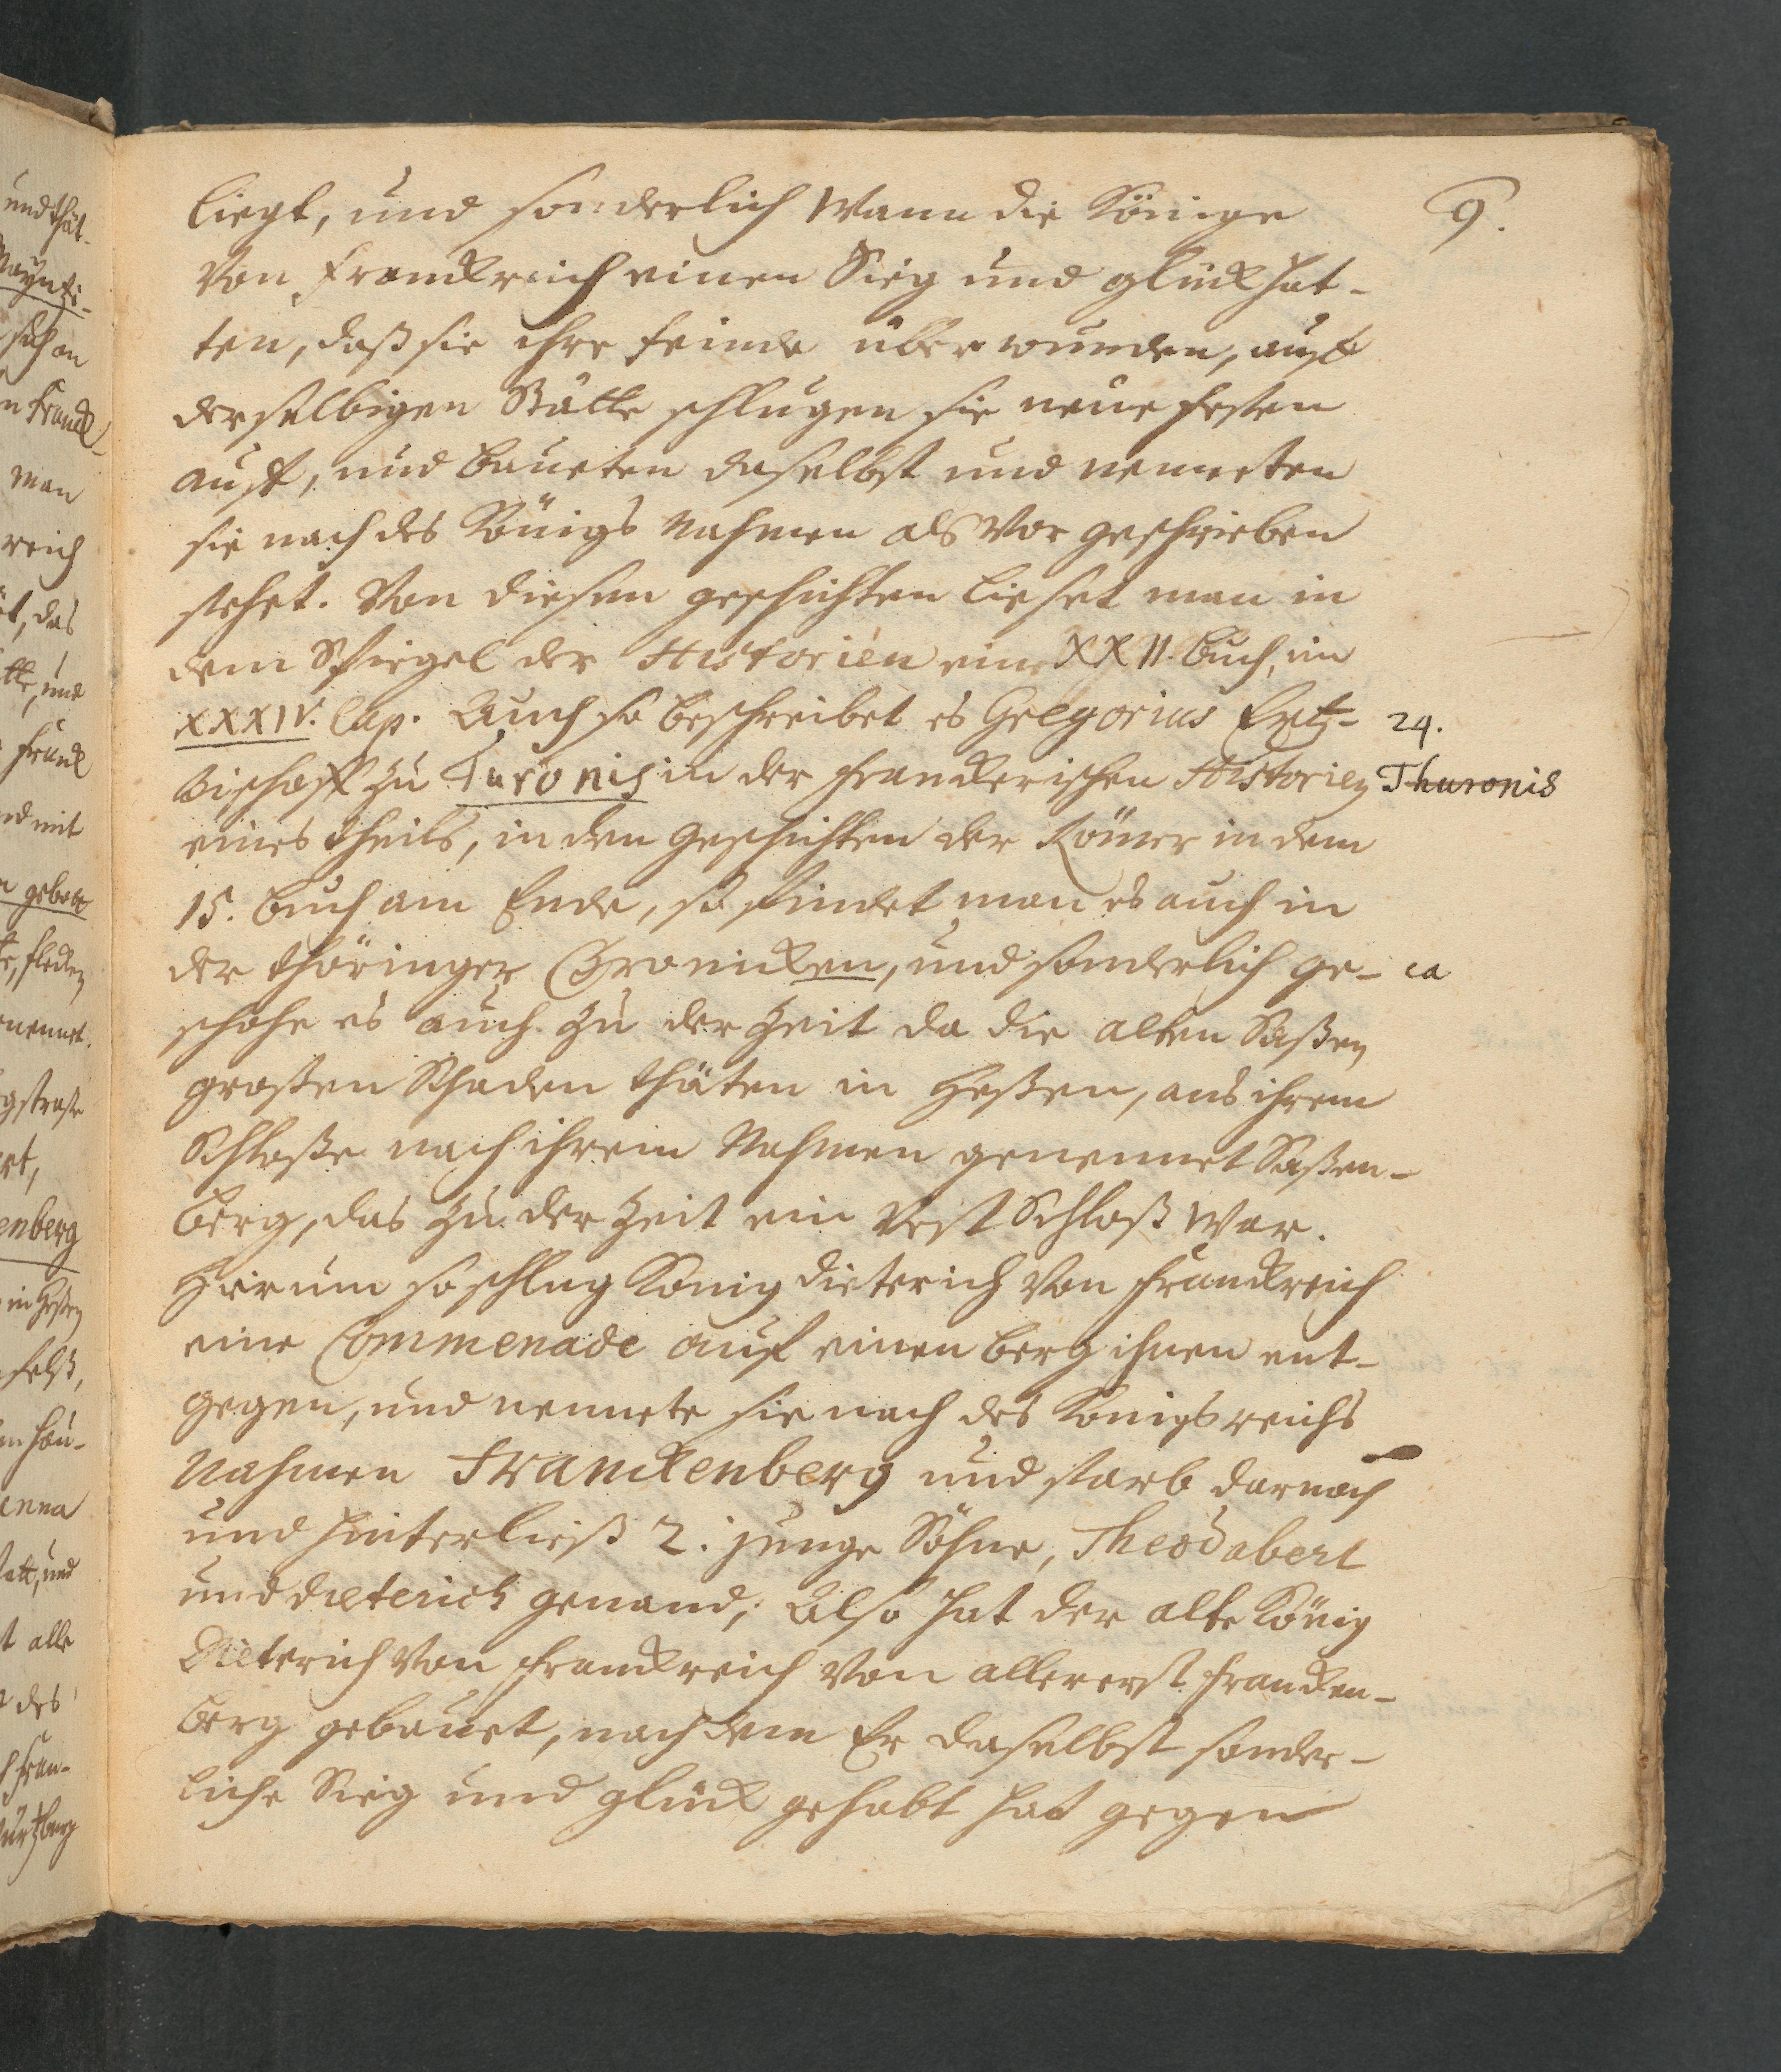 9.
liegt, und sonderlich wann die Könige
von Franckreich einen Sieg und glück hat-
ten, daß sie ihre feinde überwunden, auff
derselbigen Stätte schlugen sie neue festen
auff, und baueten daselbst und nenneten
sie nach des Königs Nahmen als vor geschrieben
stehet. Von diesen geschichten lieset man in
dem Spiegel der Historien im XXII. buch, im
XXXIV. Cap. Auch so beschreibet es Gregorius Ertz- 24.
bischoff zu Turonis in der franckerischen Historien Thuronis
eines theils, in den Geschichten der Römer in dem
15. buch am Ende, so findet man es auch in
der thöringer Chronicken, und sonderlich ge- ca
schahe es auch zu der Zeit da die alten Saßen
großen Schaden thäten in Heßen, aus ihrem
Schloße nach ihrem Nahmen genennet Saßen-
berg, das zu der Zeit ein vest Schloß war.
Hierum so schlug König dieterich von franckreich
eine Commenade auf einen berg ihnen ent-
gegen, und nennete sie nach des Königreichs
Nahmen Franckenberg und starb darnach
und hinterließ 2. junge Söhne, Theodabert
und dieterich genand; Also hat der alte König
Dieterich von franckreich von allererst francken-
berg gebauet, nachdem Er daselbst sonder-
liche Sieg und glück gehabt hat gegen